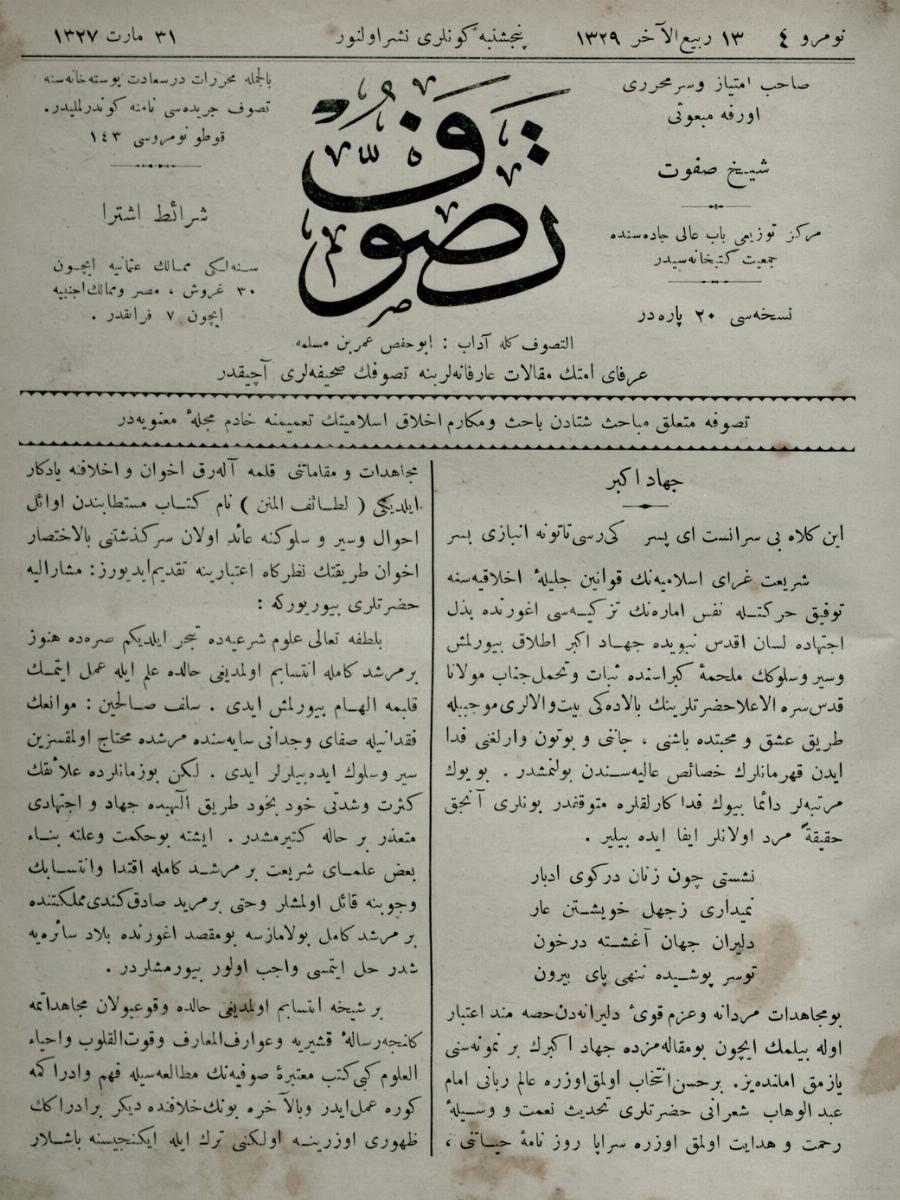 نومرو ٤ ١٣ ربیع الآخر ١٣٢٩ پنجشنبه کونلری نشر اولنور ٣١ مارت ١٣٢٧
صاحب امتیاز وسر محرری
اورفه مبعوثی
شیخ صفوت
مرکز توزیعی باب عالی جاده‌سنده
جمعیت کتبخانه‌سیدر
نسخه‌سی ٢٠ پاره‌در
تصوف
بالجمله محررات درسعادت پوسته‌خانه‌سنه
تصوف جریده‌سی نامنه کوندرلملیدر.
قوطو نومروسی ١٤٣
شرائط اشترا
سنه‌لکی ممالك عثمانیه ایچون
٣٠ غروش ، مصر وممالك اجنبیه
ایچون ٧ فرانقدر .
التصوف کله آداب : ابوحفص عمر بن مسلمه
عرفای امتك مقالات عارفانه‌لرینه تصوفك صحیفه‌لری آچیقدر
تصوفه متعلق مباحث شتادن باحث ومکارم اخلاق اسلامیتك تعمیمنه خادم مجلهٔ معنویه‌در
جهاد اکبر
این کلاه بی سرانست ای پسر کی رسی تاتونه انبازی بسر
شریعت غرای اسلامیه‌نك قوانین جلیلهٔ اخلاقیه‌سنه
توفیق حرکتله نفس اماره‌نك تزکیه‌سی اغورنده بذل
اجتهاده لسان اقدس نبویده جهاد اکبر اطلاق بیورلمش
وسیر وسلوکك ملحمهٔ کبراسنده ثبات وتحمل جناب مولانا
قدس سره الاعلا حضرتلرینك بالاده‌کی بیت والالری موجبیله
طریق عشق و محبتده باشنی ، جانی و بوتون وارلغنی فدا
ایدن قهرمانلرك خصائص عالیه‌سندن بولنمشدر . بو یوك
مرتبه‌لر دائما بیوك فداکارلقلره متوقفدر بونلری آنجق
حقیقةً مرد اولانلر ایفا ایده بیلیر .
نشستی چون زنان درکوی ادبار
نمیداری زجهل خویشتن عار
دلیران جهان آغشته درخون
توسر پوشیده ننهی پای بیرون
بومجاهدات مردانه وعزم قویٔ دلیرانه‌دن حصه مند اعتبار
اوله بیلمك ایچون بومقاله‌مزده جهاد اکبرك بر نمونه‌سنی
یازمق املنده‌یز. بر حسن انتخاب اولمق اوزره عالم ربانی امام
عبد الوهاب شعرانی حضرتلری تحدیث نعمت و وسیلهٔ
رحمت و هدایت اولمق اوزره سراپا روز نامهٔ حیاتنی ،
مجاهدات و مقاماتنی قلمه آله‌رق اخوان و اخلافنه یادکار
ایلدیکی ( لطائف المنن ) نام کتاب مستطابندن اوائل
احوال وسیر و سلوکنه عائد اولان سرکذشتنی بالاختصار
اخوان طریقتك نظرکاه اعتبارینه تقدیم ایدیورز: مشارالیه
حضرتلری بیوریورکه :
بلطفه تعالی علوم شرعیه‌ده تبحر ایلدیکم صره‌ده هنوز
بر مرشد کامله انتسابم اولمدیغی حالده علم ایله عمل ایتمك
قلبمه الهام بیورلمش ایدی . سلف صالحین : موانعك
فقدانیله صفای وجدانی سایه‌سنده مرشده محتاج اولمقسزین
سیر وسلوك ایده‌بیلرلر ایدی . لکن بوزمانلرده علائقك
کثرت وشدتی خود بخود طریق الٓهیده جهاد و اجتهادی
متعذر بر حاله کتیرمشدر . ایشته بوحکمت وعلته بناء
بعض علمای شریعت بر مرشد کامله اقتدا وانتسابك
وجوبنه قائل اولمشلر وحتی بر مرید صادق کندی مملکتنده
بر مرشد کامل بولامازسه بومقصد اغورنده بلاد سائره‌یه
شدر حل ایتمسی واجب اولور بیورمشلردر .
بر شیخه انتسابم اولمدیغی حالده وقوعبولان مجاهداتمه
کلنجه رسالهٔ قشیریه وعوارف المعارف وقوت القلوب واحیاء
العلوم کبی کتب معتبرهٔ صوفیه‌نك مطالعه‌سیله فهم وادراکمه
کوره عمل ایدر وبالآخره بونك خلافنده دیکر بر ادراکك
ظهوری اوزرینه اولکنی ترك ایله ایکنجیسنه باشلار